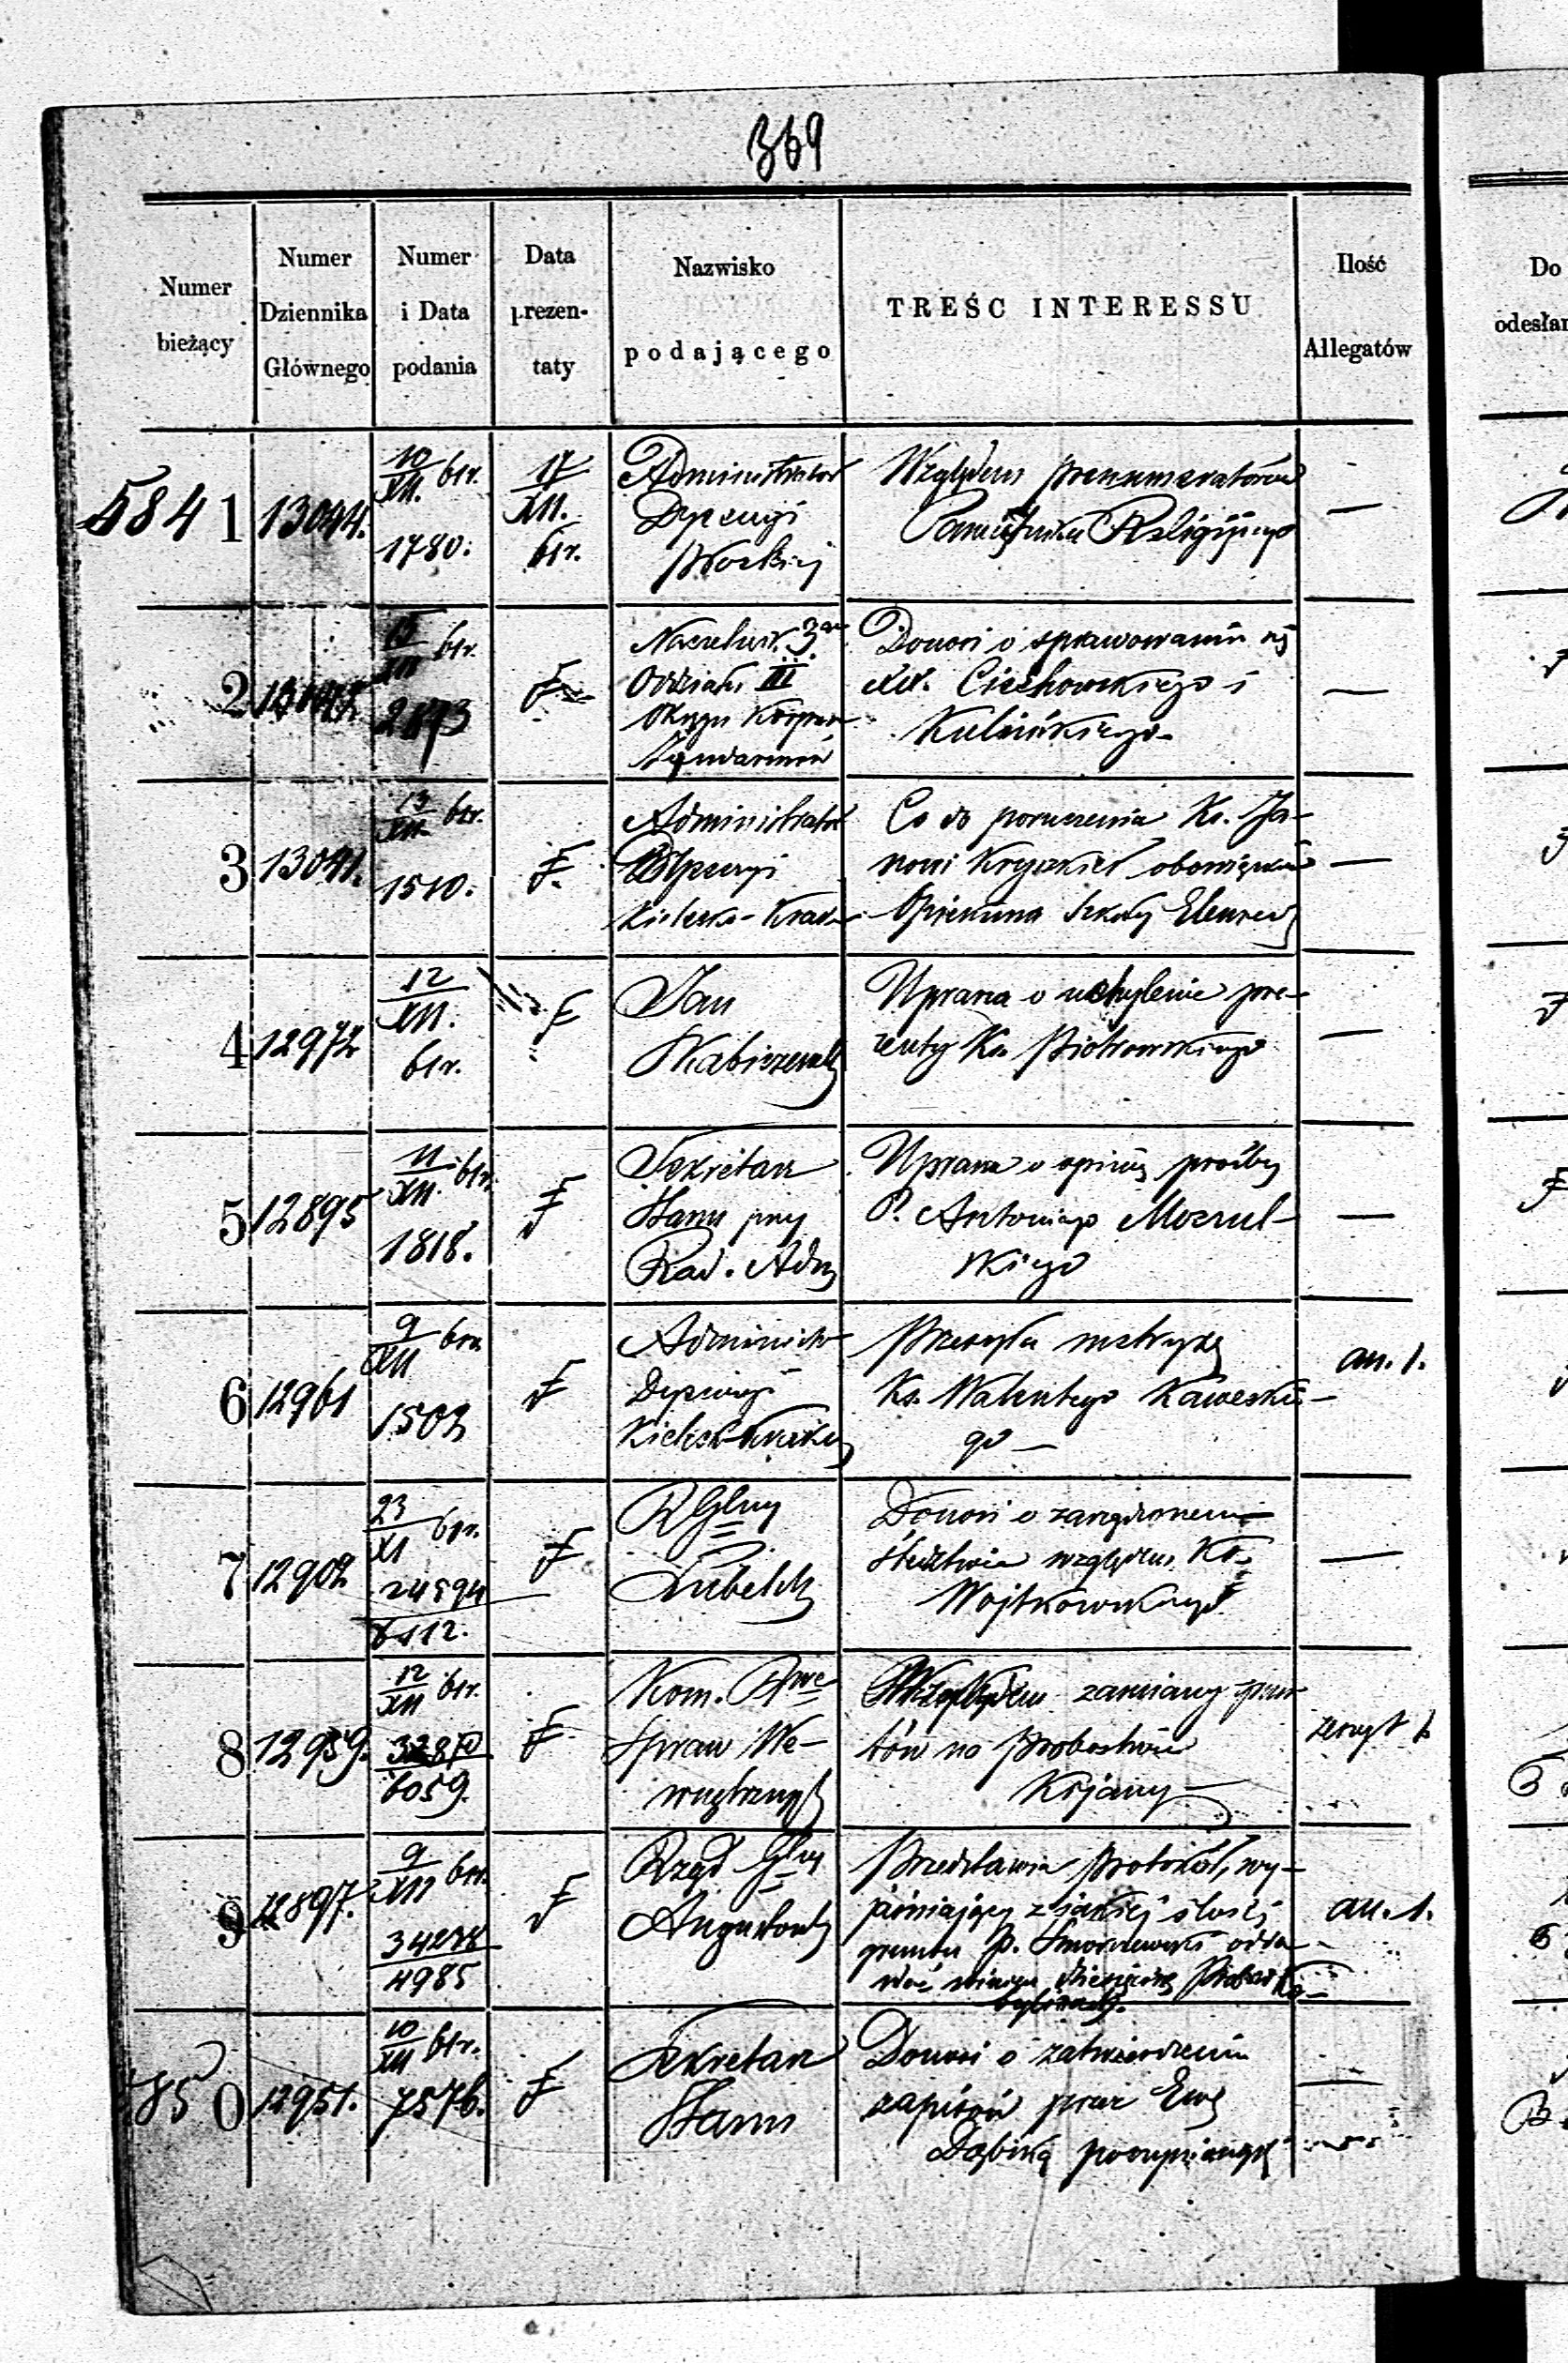 369
Numer bieżący
Numer Dziennika Głównego
Numer i Data podania
Data prezen- taty
Nazwisko podającego
TREŚC INTERESSU
Ilość Allegatów
Do
odesłan
5841
13044.
10/XII. btr.
1780.
17/XII. btr.
Administrator
Dyecezyi
Płockiej
Względem prenumeratorów
Pamiętnika Religijnego
—
2
btr.
Naczelnik 3go
Oddziału III
Okręgu Korpusu
Żandarmów
Donosi o sprawowaniu się
XX. Ciechowskiego i
Kulińskiego
—
3
13041.
13/XII btr.
1510.
Administrator
Dyecezyi
Kielecko-Krak
Co do poruczenia Ks. Ja-
nowi Kryszkiel obowiązków
Opiekuna Szkoły Elemen
—
4
12972
12/XII.
btr.
Jan
Uprasza o uchylenie pre-
zenty Ks. Piotrowskiego
—
5
12895
11/XII. btr.
1818.
Sekretarz
Stanu przy
Rad. Adm
Uprasza o opinię prośby
P. Antoniego Mozrul-
skiego
—
6
12961
9/XII btr
1502
Administr
Dyecezyi
Przesyła metrykę
Ks. Walentego Kaweskie-
go —
an. 1.
7
12902
23/XI btr.
24594
6112.
R Glny
Lubelski
Donosi o zarządzeniu
śledztwa względem Ks.
Wojtkowskiego
—
8
12959.
12/XII btr.
6059.
Kom. Rwa
Spraw We-
wnętrznych
Względem zamiany grun-
tów na Probostwie
Kijany —
zeszyt 1.
9
12897.
9/XII btr.
34278
4985
Rząd Glny
Augustowski
Przedstawia Protokół, wy-
jaśniający z jakiej ilości
gruntu P.
an. 1.
5850
12951.
10/XII btr.
7576.
Sekretarz
Stanu
Donosi o zatwierdzeniu
zapisów przez Ewę
Dąbską poczynionych
—